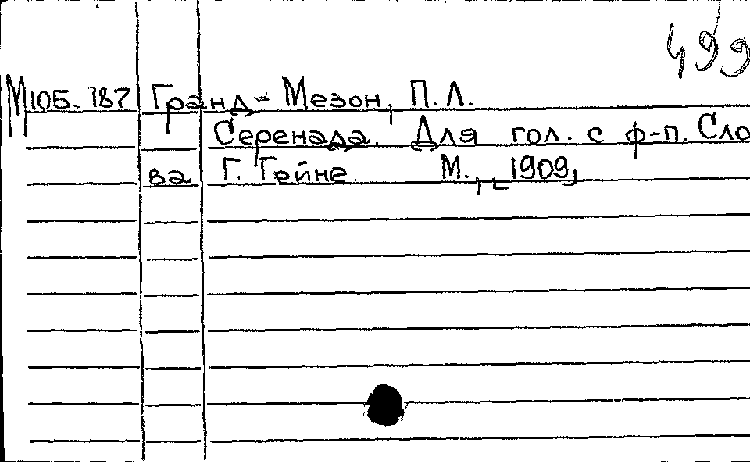 499
М105.787 Гранд-Мезон, П.Л.
Серенада. Для гол. с ф-п. Сло
ва Г. Гейне. М., [1909]